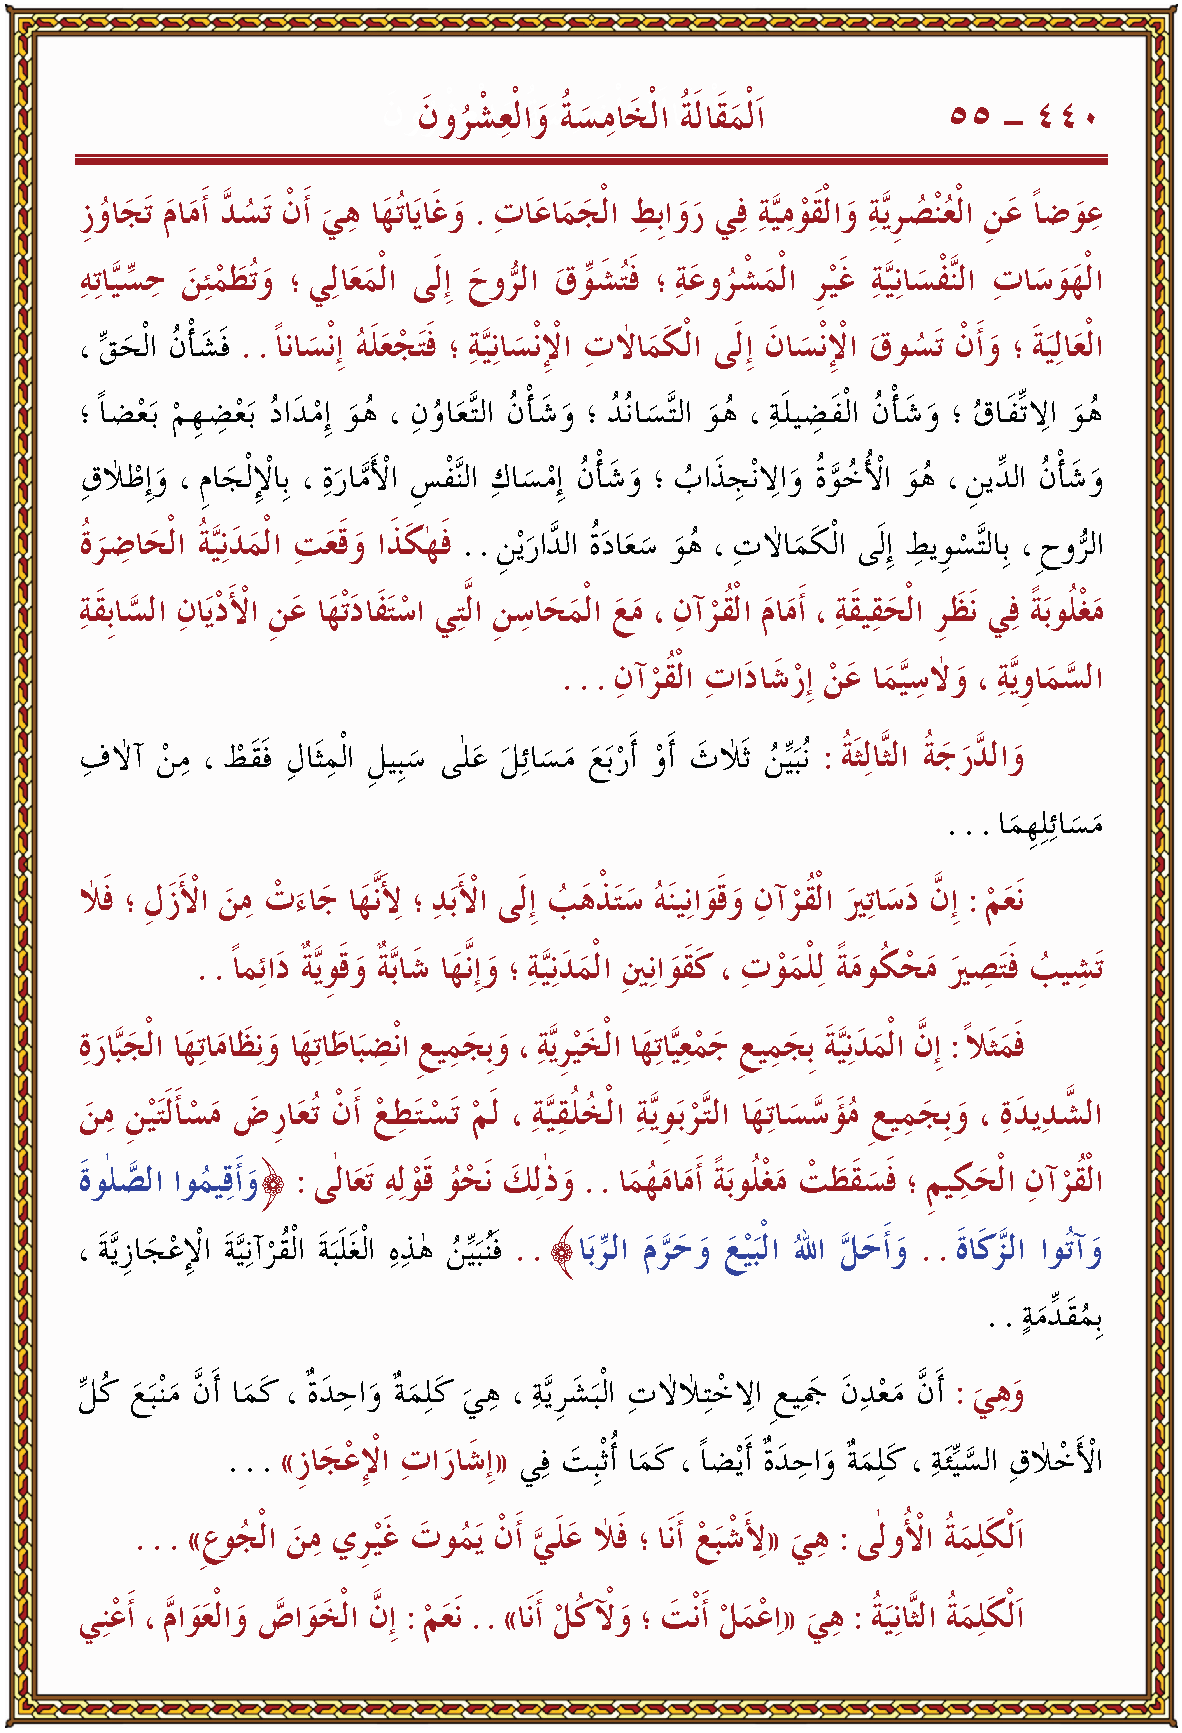 ٤٤٠ ــ ٥٥ اَلْمَقَالَةُ الْخَامِسَةُ وَالْعِشْرُونَ
عِوَضاً عَنِ الْعُنْصُرِيَّةِ وَالْقَوْمِيَّةِ فِي رَوَابِطِ الْجَمَاعَاتِ . وَغَايَاتُهَا هِيَ أَنْ تَسُدَّ أَمَامَ تَجَاوُزِ
الْهَوَسَاتِ النَّفْسَانِيَّةِ غَيْرِ الْمَشْرُوعَةِ ؛ فَتُشَوِّقَ الرُّوحَ إِلَى الْمَعَالِي ؛ وَتُطَمْئِنَ حِسِّيَّاتِهِ
الْعَالِيَةَ ؛ وَأَنْ تَسُوقَ الْإِنْسَانَ إِلَى الْكَمَالَاتِ الْإِنْسَانِيَّةِ ؛ فَتَجْعَلَهُ إِنْسَاناً . . فَشَأْنُ الْحَقِّ ،
هُوَ اِلاتِّفَاقُ ؛ وَشَأْنُ الْفَضِيلَةِ ، هُوَ التَّسَانُدُ ؛ وَشَأْنُ التَّعَاوُنِ ، هُوَ إِمْدَادُ بَعْضِهِمْ بَعْضاً ؛
وَشَأْنُ الدِّينِ ، هُوَ الْأُخُوَّةُ وَاِلانْجِذَابُ ؛ وَشَأْنُ إِمْسَاكِ النَّفْسِ الْأَمَّارَةِ ، بِالْإِلْجَامِ ، وَإِطْلَاقِ
الرُّوحِ ، بِالتَّسْوِيطِ إِلَى الْكَمَالَاتِ ، هُوَ سَعَادَةُ الدَّارَيْنِ . . فَهٰكَذَا وَقَعَتِ الْمَدَنِيَّةُ الْحَاضِرَةُ
مَغْلُوبَةً فِي نَظَرِ الْحَقِيقَةِ ، أَمَامَ الْقُرْآنِ ، مَعَ الْمَحَاسِنِ الَّتِي اسْتَفَادَتْهَا عَنِ الْأَدْيَانِ السَّابِقَةِ
السَّمَاوِيَّةِ ، وَلَاسِيَّمَا عَنْ إِرْشَادَاتِ الْقُرْآنِ . . .
وَالدَّرَجَةُ الثَّالِثَةُ : نُبَيِّنُ ثَلَاثَ أَوْ أَرْبَعَ مَسَائِلَ عَلٰى سَبِيلِ الْمِثَالِ فَقَطْ ، مِنْ آلَافِ
مَسَائِلِهِمَا . . .
نَعَمْ : إِنَّ دَسَاتِيرَ الْقُرْآنِ وَقَوَانِينَهُ سَتَذْهَبُ إِلَى الْأَبَدِ ؛ لِأَنَّهَا جَاءَتْ مِنَ الْأَزَلِ ؛ فَلَا
تَشِيبُ فَتَصِيرَ مَحْكُومَةً لِلْمَوْتِ ، كَقَوَانِينِ الْمَدَنِيَّةِ ؛ وَإِنَّهَا شَابَّةٌ وَقَوِيَّةٌ دَائِماً . .
فَمَثَلاً : إِنَّ الْمَدَنِيَّةَ بِجَمِيعِ جَمْعِيَّاتِهَا الْخَيْرِيَّةِ ، وَبِجَمِيعِ انْضِبَاطَاتِهَا وَنِظَامَاتِهَا الْجَبَّارَةِ
الشَّدِيدَةِ ، وَبِجَمِيعِ مُؤَسَّسَاتِهَا التَّرْبَوِيَّةِ الْخُلُقِيَّةِ ، لَمْ تَسْتَطِعْ أَنْ تُعَارِضَ مَسْأَلَتَيْنِ مِنَ
الْقُرْآنِ الْحَكِيمِ ؛ فَسَقَطَتْ مَغْلُوبَةً أَمَامَهُمَا . . وَذٰلِكَ نَحْوُ قَوْلِهِ تَعَالٰى : ﴿وَأَقِيمُوا الصَّلٰوةَ
وَآتُوا الزَّكَاةَ . . وَأَحَلَّ اللهُ الْبَيْعَ وَحَرَّمَ الرِّبَا﴾ . . فَنُبَيِّنُ هٰذِهِ الْغَلَبَةَ الْقُرْآنِيَّةَ الْإِعْجَازِيَّةَ ،
بِمُقَدِّمَةٍ . .
وَهِيَ : أَنَّ مَعْدِنَ جَمِيعِ اِلاخْتِلَالَاتِ الْبَشَرِيَّةِ ، هِيَ كَلِمَةٌ وَاحِدَةٌ ، كَمَا أَنَّ مَنْبَعَ كُلِّ
الْأَخْلَاقِ السَّيِّئَةِ ، كَلِمَةٌ وَاحِدَةٌ أَيْضاً ، كَمَا أُثْبِتَ فِي «إِشَارَاتِ الْإِعْجَازِ» . . .
اَلْكَلِمَةُ الْأُولٰى : هِيَ «لِأَشْبَعْ أَنَا ؛ فَلَا عَلَيَّ أَنْ يَمُوتَ غَيْرِي مِنَ الْجُوعِ» . . .
اَلْكَلِمَةُ الثَّانِيَةُ : هِيَ «اِعْمَلْ أَنْتَ ؛ وَلْآكُلْ أَنَا» . . نَعَمْ : إِنَّ الْخَوَاصَّ وَالْعَوَامَّ ، أَعْنِي